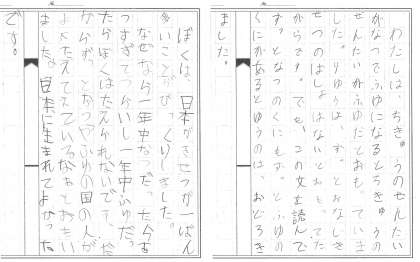 わたしは、ちきゅうのせんたい
がなつでふゆになるとちきゅうの
せんたいがふゆだとおもっていま
した。りゆうは、ずっとおなじき
せつのばしょはないとおもってた
からです。でも、この文を読んで
ずっとなつのくにもずっとふゆの
くにがあるとゆうのは、おどろき
ました。
ぼくは、日本がきせつが一ばん
多いことがびっくりしました。
なぜなら一年中なつだったらあ
つすぎてつらいし一年中ふゆだっ
たらぼくはたえられないです。だ
からずっとなつやふゆの国の人が
よくたえているなあとおもい
ました。日本に生まれてよかった
です。